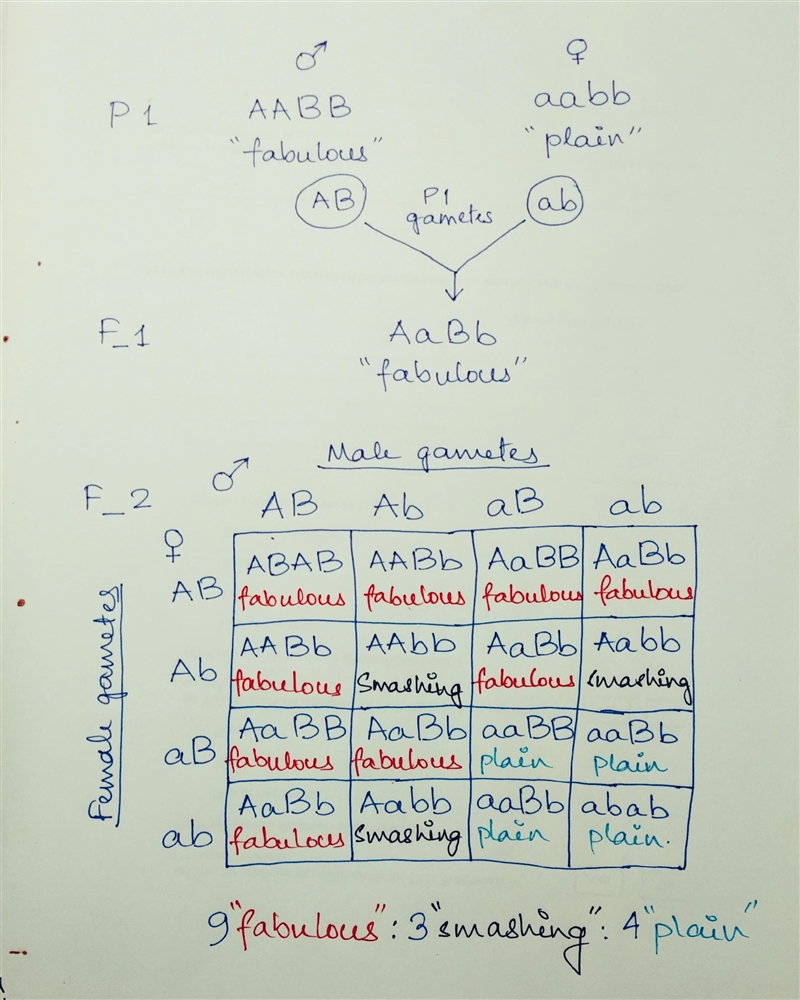 ♂ ♀
P1 AABB aabb
"fabulous" "plain"
AB P1 gametes ab
F_1 AaBb
"fabulous"
Male gametes
F_2 ♂ AB Ab aB ab
♀
Female gametes
AB ABAB AABb AaBB AaBb
fabulous fabulous fabulous fabulous
Ab AABb AAbb AaBb Aabb
fabulous Smashing fabulous smashing
aB AaBB AaBb aaBB aaBb
fabulous fabulous plain plain
ab AaBb Aabb aaBb abab
fabulous Smashing plain plain.
9 "fabulous" : 3 "smashing" : 4 "plain"